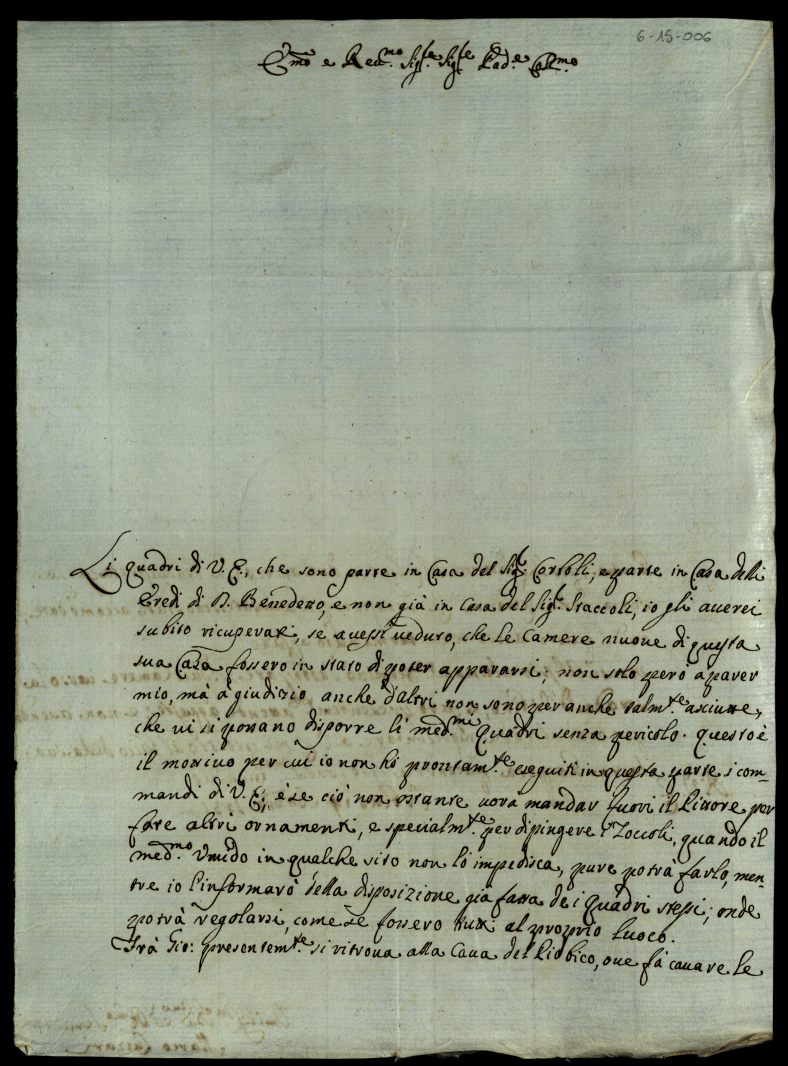 6-15-006
Em̃o e Rev.mo Sig.re Sig.re Pad.e Col.mo
Li quadri di V. E., che sono parte in Casa del Sig.r Corboli, e parte in Casa delli
Eredi di B. Benedetto, e non già in Casa del Sig.r Staccoli, io gli averei
subito ricuperati, se avessi veduto, che le Camere nuove di questa
sua Casa fossero in stato di poter appararsi; non solo però a parer
mio, mà à giudizio anche d'altri non sono per anche talm.te asciutte,
che vi si possano disporre li med.mi Quadri senza pericolo. Questo è
il motivo per cui io non hò prontam.te eseguiti in questa parte i com-
mandi di V. E.; e se ciò non ostante vorà mandar fuori il Pittore per
fare altri ornamenti, e specialm.te per dipingere i Zoccoli, quando il
med.mo Umido in qualche sito non lo impedisca, pure potrà farlo, men-
tre io l'informarò della disposizione già fatta de i quadri stessi; onde
potrà regolarsi, come se fossero tutti al proprio luoco.
Frà Gio: presentem.te si ritrova alla Cava del Piobico, ove fà cavare le